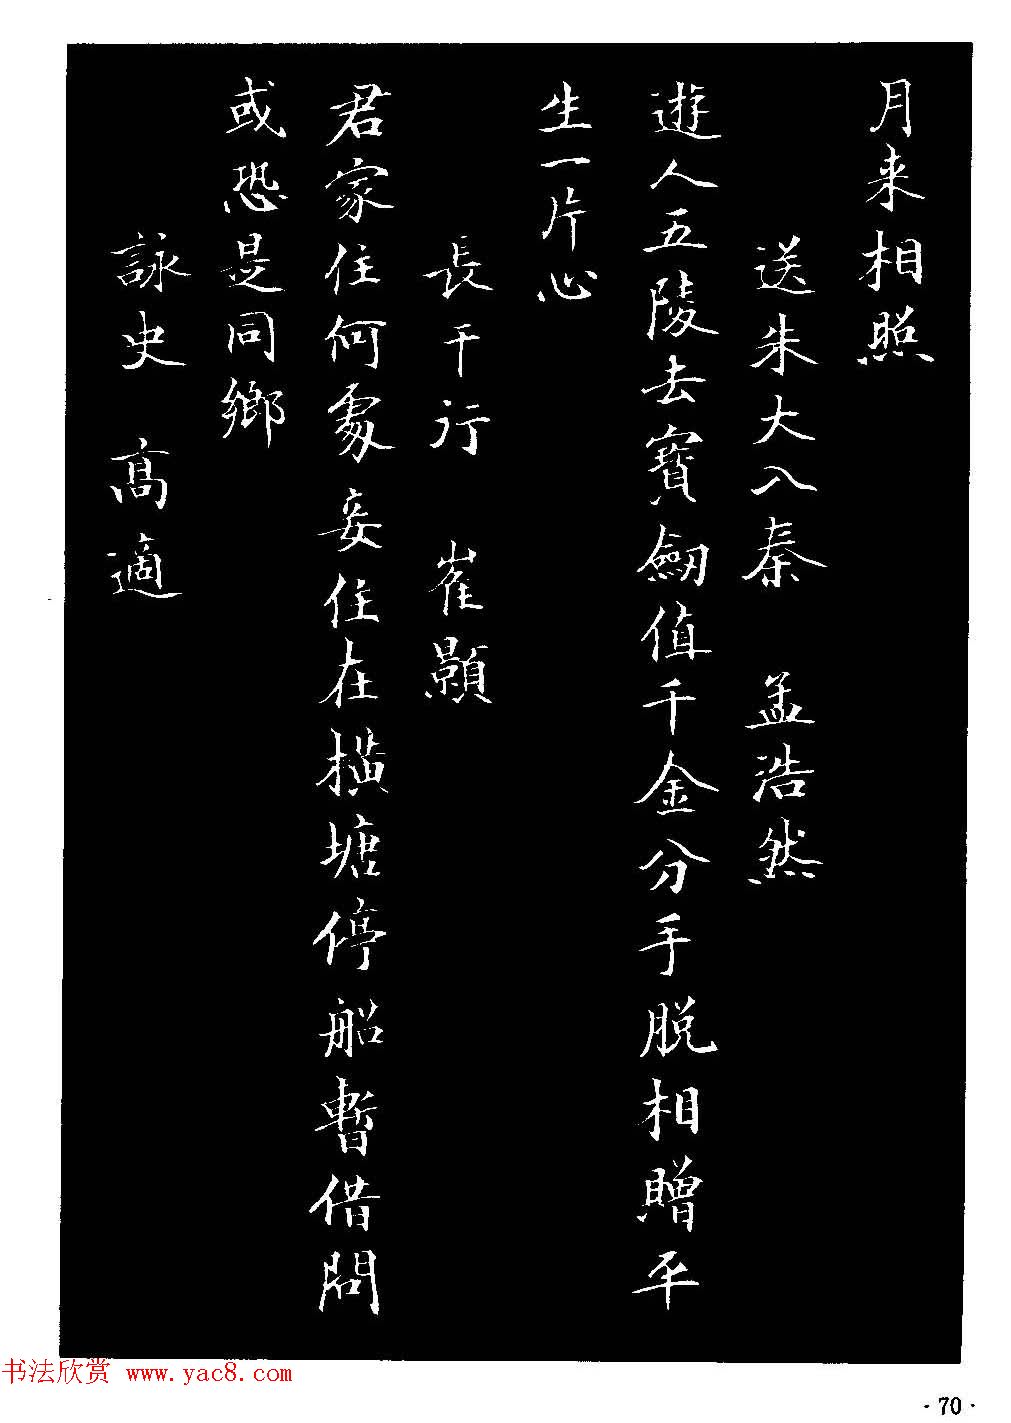 月来相照
送朱大入秦 孟浩然
遊人五陵去寳劒值千金分手脱相贈平
生一片心
長干行 崔顥
君家住何處妾住在横塘停船暫借問
或恐是同鄉
詠史 高適
书法欣赏 www.yac8.com
·70·